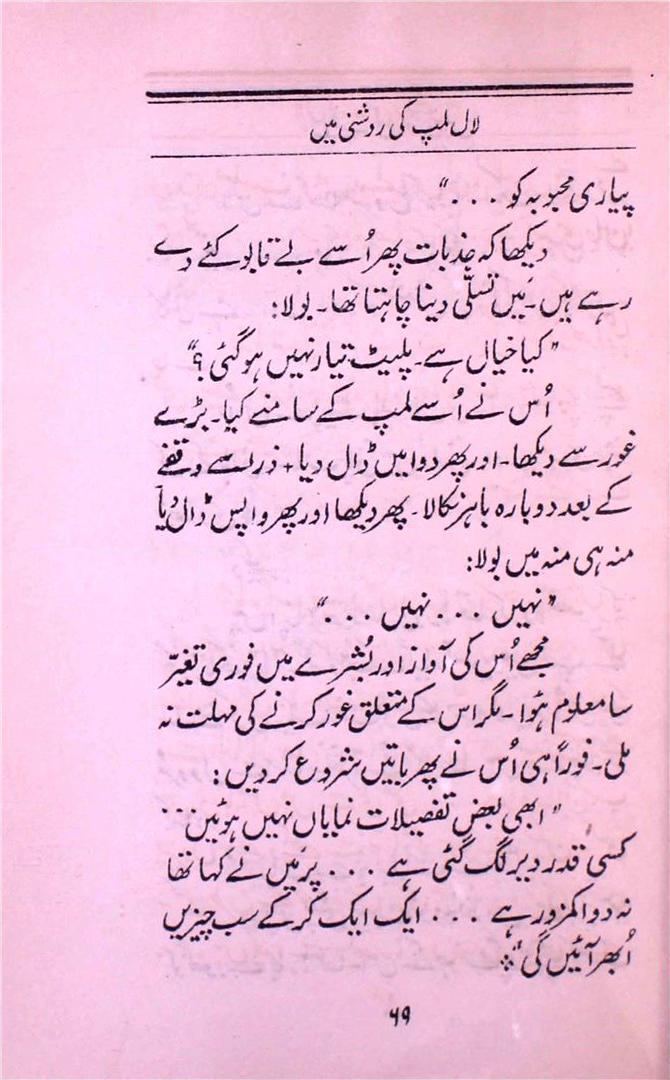 لال لمپ کی روشنی میں
پیاری محبوبہ کو . . . "
دیکھا کہ جذبات پھر اُسے بے قابو کئے دے
رہے ہیں۔ مَیں تسلّی دینا چاہتا تھا۔ بولا:
"کیا خیال ہے۔ پلیٹ تیار نہیں ہو گئی؟"
اُس نے اُسے لمپ کے سامنے کیا۔ بڑے
غور سے دیکھا۔ اور پھر دوا میں ڈال دیا + ذرا سے وقفے
کے بعد دوبارہ باہر نکالا۔ پھر دیکھا اور پھر واپس ڈال دیا
منہ ہی منہ میں بولا:
"نہیں . . . نہیں . . . "
مجھے اُس کی آواز اور بُشرے میں فوری تغیّر
سا معلوم ہؤا۔ مگر اس کے متعلق غور کرنے کی مہلت نہ
ملی۔ فوراً ہی اُس نے پھر باتیں شروع کر دیں:
"ابھی بعض تفصیلات نمایاں نہیں ہوئیں . . .
کسی قدر دیر لگ گئی ہے . . . پر مَیں نے کہا تھا
نہ دوا کمزور ہے . . . ایک ایک کر کے سب چیزیں
اُبھر آئیں گی"÷
۶۹